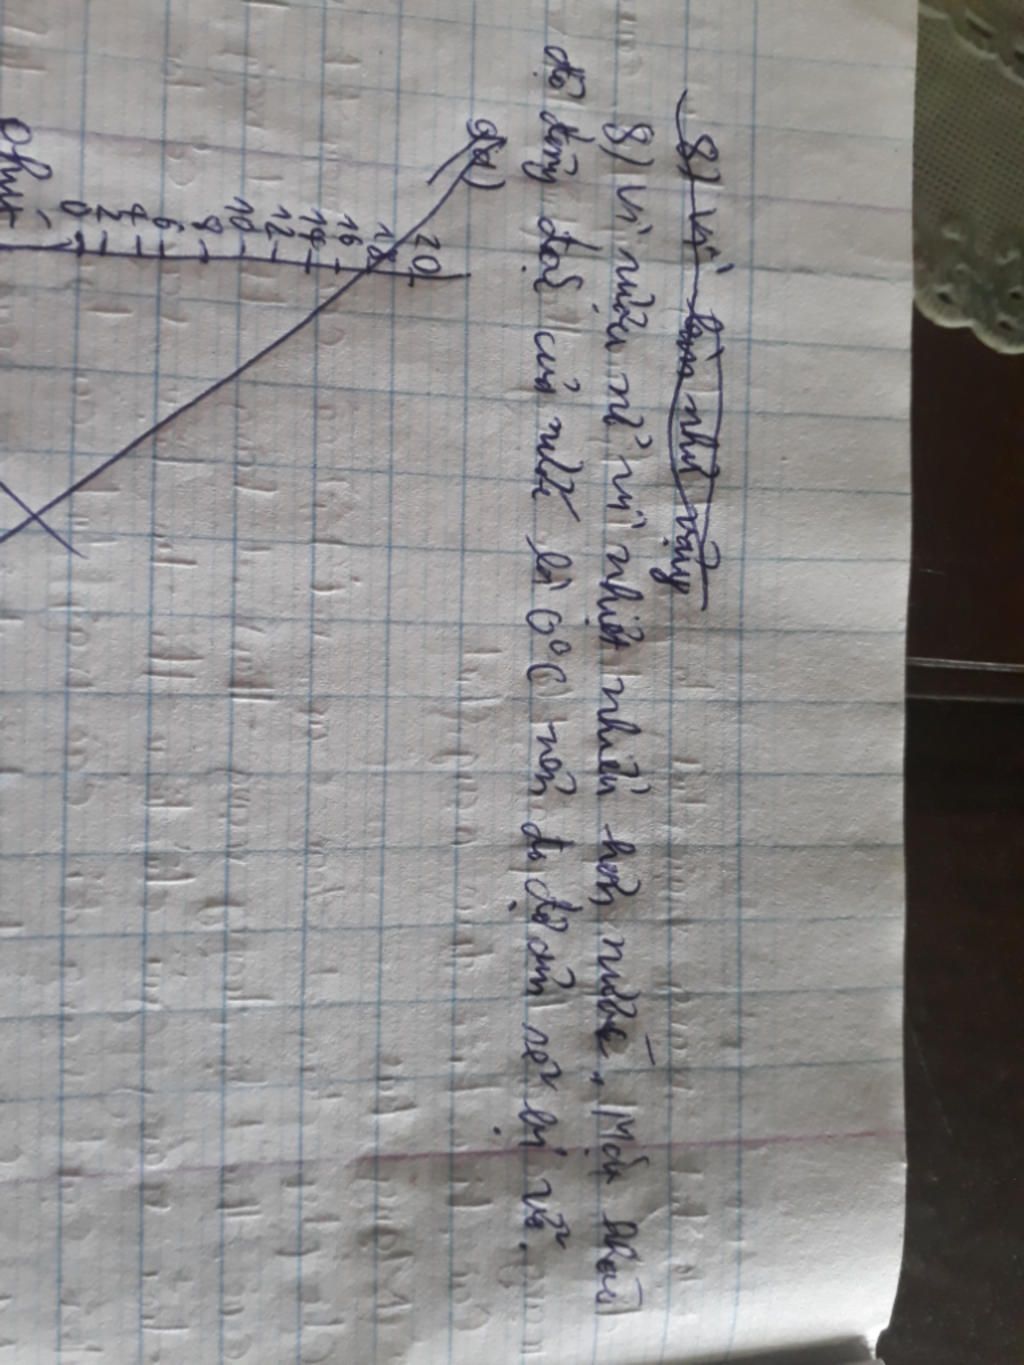 8) Vì làm như vậy
8) Vì rượu nở vì nhiệt nhiều hơn nước. Mà
độ đông đặc của nước là 0°C nên do đó sẽ bị vỡ.
20
18
16
14
12
10
8
6
4
2
0
phút